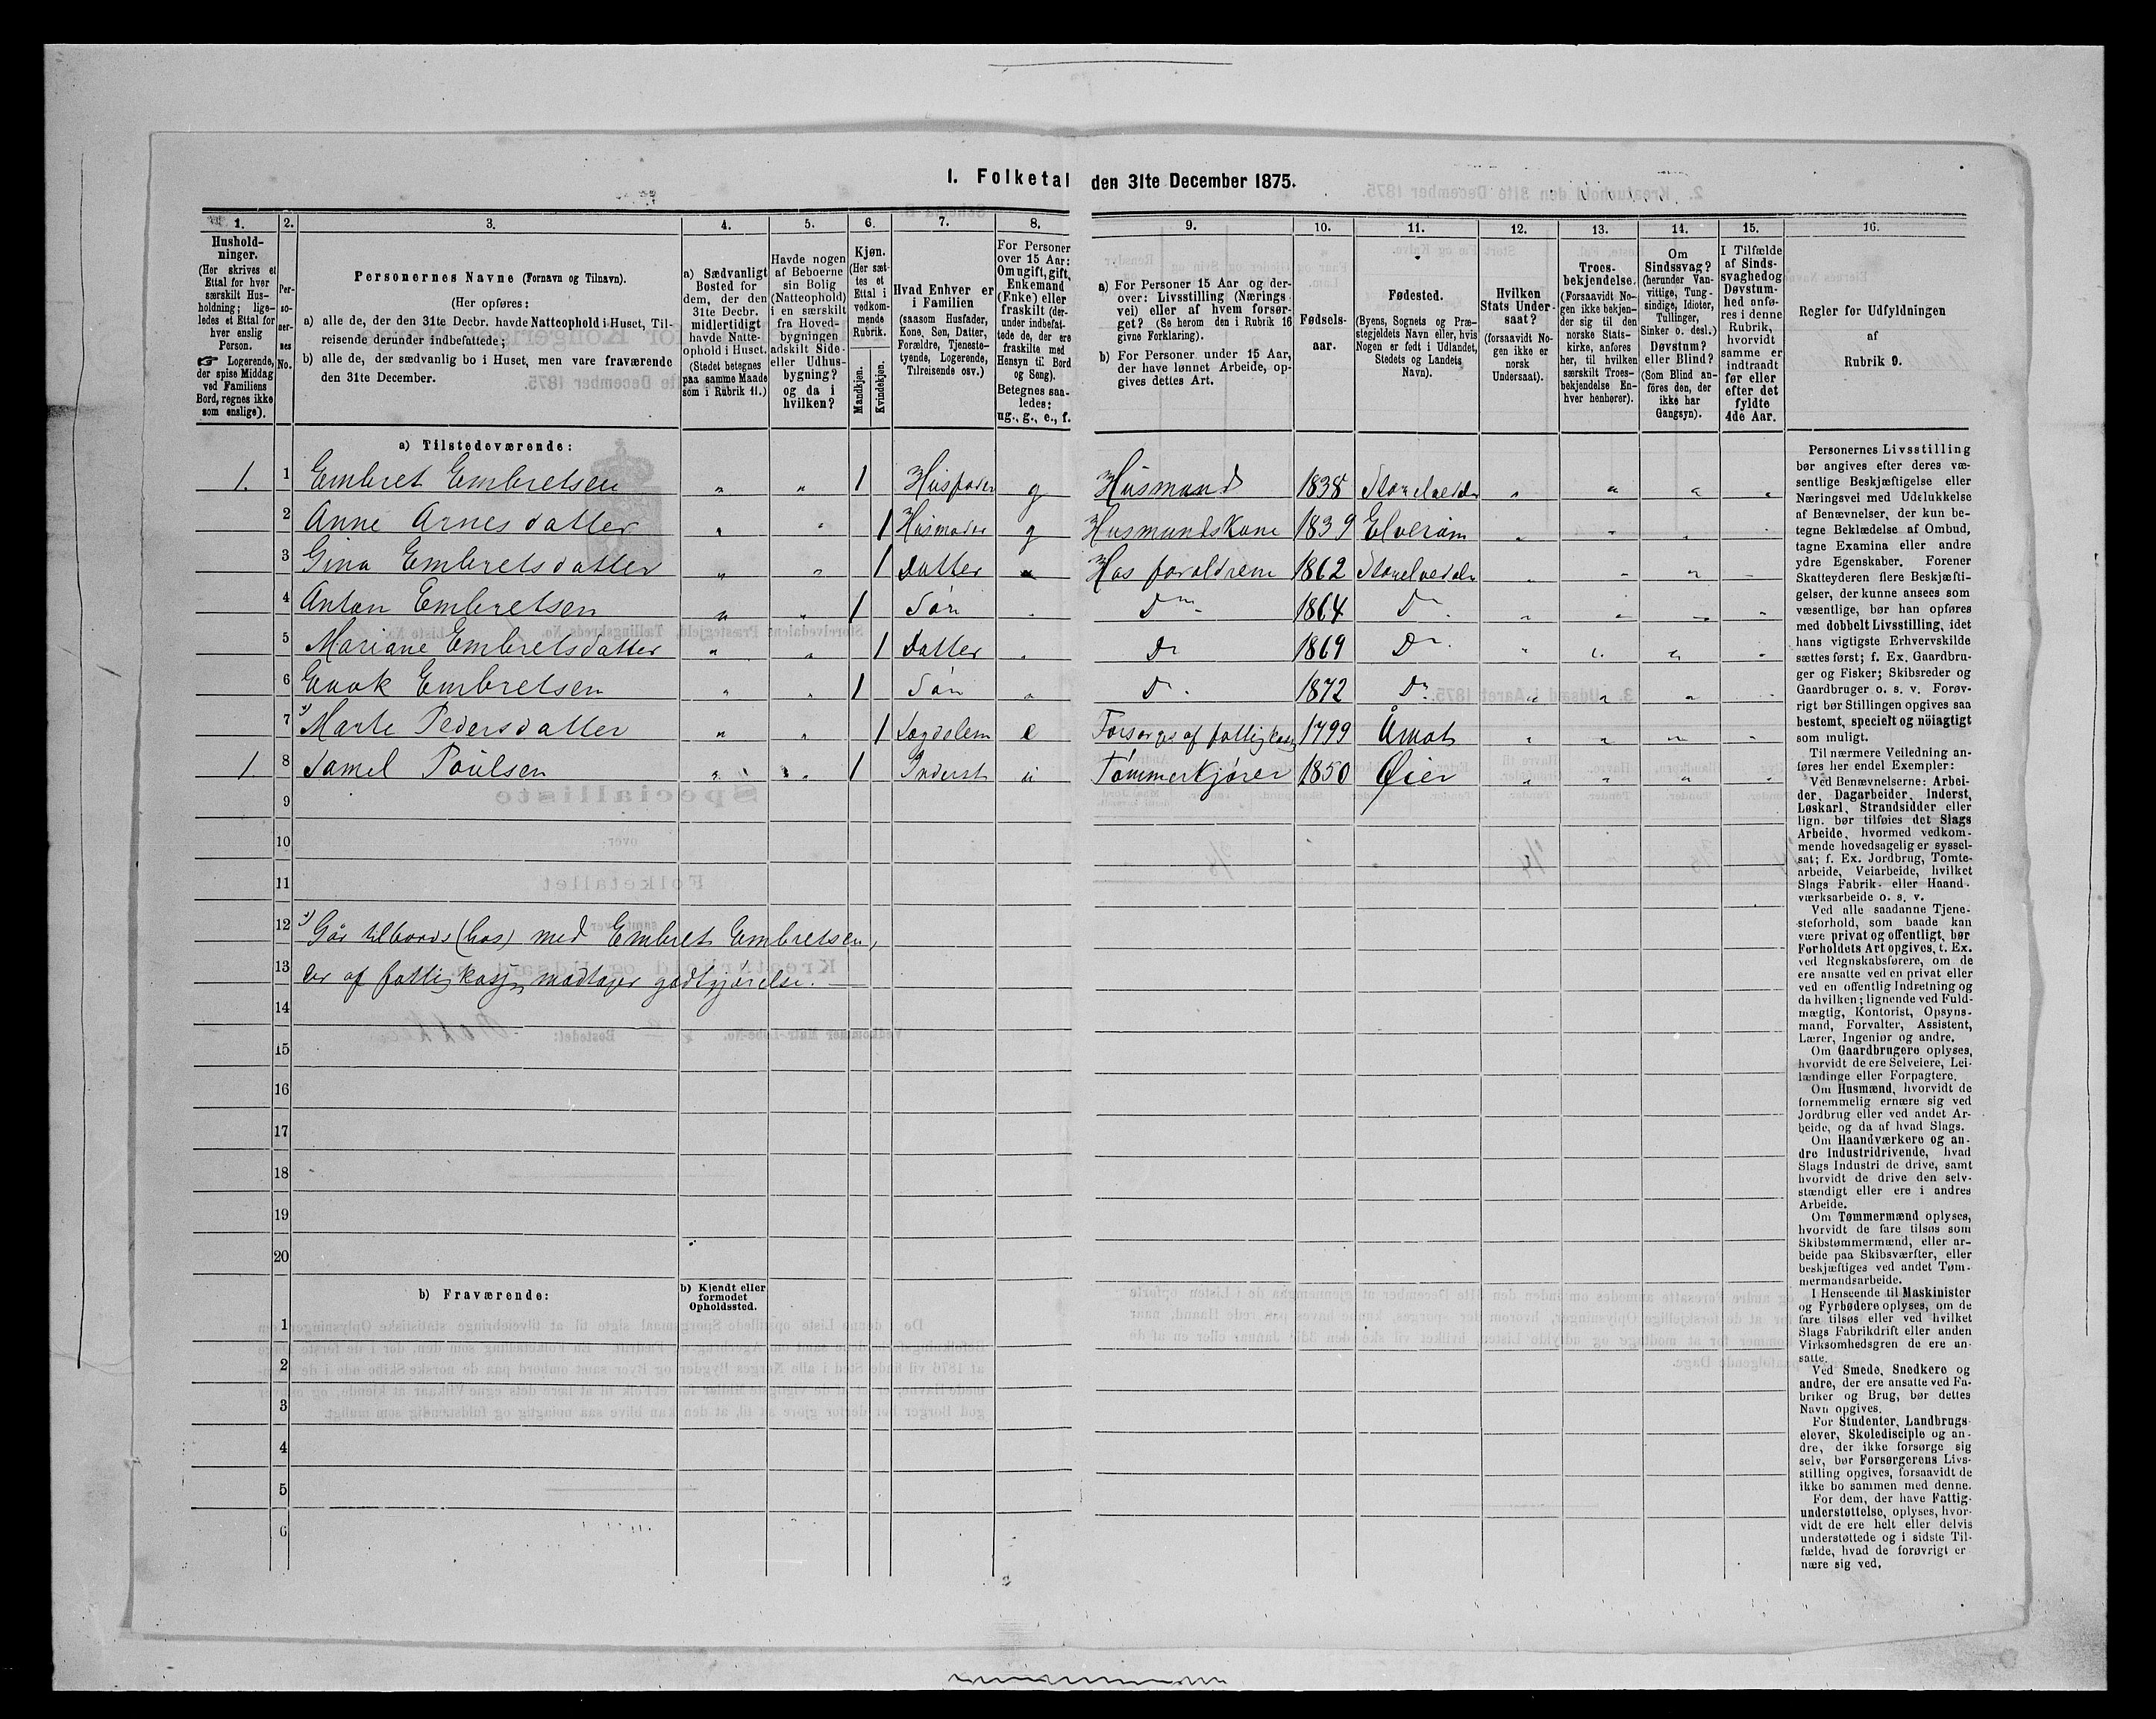 I. Folketal den 31te December 1875.
1.
Hushold-
ninger.
(Her skrives et
Ettal for hver
særskilt Hus-
holdning; lige-
ledes et Ettal for
hver enslig
Person.
☞ Logerende,
der spise Middag
ved Familiens
Bord, regnes ikke
som enslige).
2.
Per-
so-
ner-
nes
No.
3.
Personernes Navne (Fornavn og Tilnavn).
(Her opføres:
a) alle de, der den 31te Decbr. havde Natteophold i Huset, Til-
reisende derunder indbefattede;
b) alle de, der sædvanlig bo i Huset, men vare fraværende
den 31te December.
4.
a) Sædvanligt
Bosted for
dem, der den
31te Decbr.
midlertidigt
havde Natte-
ophold i Huset.
(Stedet betegnes
paa samme Maade
som i Rubrik 11.)
5.
Havde nogen
af Beboerne
sin Bolig
(Natteophold)
i en særskilt
fra Hoved-
bygningen
adskilt Side-
eller Udhus-
bygning?
og da i
hvilken?
6.
Kjøn.
(Her sæt-
tes et
Ettal i
vedkom-
mende
Rubrik.
Mandkjøn.
Kvindekjøn.
7.
Hvad Enhver er
i Familien
(saasom Husfader,
Kone, Søn, Datter,
Forældre, Tjeneste-
tyende, Logerende,
Tilreisende osv.)
8.
For Personer
over 15 Aar:
Om ugift, gift,
Enkemand
(Enke) eller
fraskilt (der-
under indbefat-
tede de, der ere
fraskilte med
Hensyn til Bord
og Seng).
Betegnes saa-
ledes:
ug., g., e., f.
9.
a) For Personer 15 Aar og der-
over: Livsstilling (Nærings
vei) eller af hvem forsør-
get? (Se herom den i Rubrik 16
givne Forklaring).
b) For Personer under 15 Aar,
der have lønnet Arbeide, op-
gives dettes Art.
10.
Fødsels-
aar.
11.
Fødested.
(Byens, Sognets og Præ-
stegjeldets Navn eller, hvis
Nogen er født i Udlandet,
Stedets og Landets
Navn).
12.
Hvilken
Stats Under-
saat?
(forsaavidt No-
gen ikke er
norsk
Undersaat).
13.
Troes-
bekjendelse.
(Forsaavidt No-
gen ikke bekjen-
der sig til den
norske Stats-
kirke, anføres
her, til hvilken
særskilt Troes-
bekjendelse En-
hver henhører).
14.
Om
Sindssvag?
(herunder Van-
vittige, Tung-
sindige, Idioter,
Tullinger,
Sinker o. desl.)
Døvstum?
eller Blind?
(Som Blind an-
föres den, der
ikke har
Gangsyn).
15.
I Tilfælde
af Sinds-
svaghed og
Døvstum-
hed anfø-
res i denne
Rubrik,
hvorvidt
samme er
indtraadt
før eller
efter det
fyldte
4de Aar.
16.
Regler for Udfyldningen
af
Rubrik 9.
a) Tilstedeværende:
1. 1 Embret Embretsen „ „ 1 Husfader g Husmand 1838 Storelvedalen „ „ „ „
2 Anne Arnesdatter „ „ 1 Husmoder g Husmandskone 1839 Elverum „ „ „ „
3 Gina Embretsdatter „ „ 1 Datter Hos forældrene 1862 Storelvedalen „ „ „ „
4 Anton Embretsen „ „ 1 Søn „ Do 1864 Do „ „ „ „
5 Mariane Embretsdatter „ „ 1 Datter „ Do 1869 Do „ „ „ „
6 Embretsen „ „ 1 Søn „ Do 1872 Do „ „ „ „
7 Marte Pedersdatter „ „ 1 Lægdslem e Forsørges af fattigkass 1799 Åmot „ „ „ „
1. 8 Samel Poulsen „ „ 1 Inderst u Tømmerkjører 1850 Øier „ „ „ „
9
10
11
12 Går tilbords (hos) med Embret Embretsen,
13 der af fattigkassen modtager godtgjørelse. —
14
15
16
17
18
19
20
b) Fraværende:
b) Kjendt eller
formodet
Opholdssted.
1
2
3
4
5
6
Personernes Livsstilling
bør angives efter deres væ-
sentlige Beskjæftigelse eller
Næringsvei med Udelukkelse
af Benævnelser, der kun be-
tegne Beklædelse af Ombud,
tagne Examina eller andre
ydre Egenskaber. Forener
Skatteyderen flere Beskjæfti-
gelser, der kunne ansees som
væsentlige, bør han opføres
med dobbelt Livsstilling, idet
hans vigtigste Erhvervskilde
sættes først; f. Ex. Gaardbru-
ger og Fisker; Skibsreder og
Gaardbruger o. s. v. Forøv-
rigt bør Stillingen opgives saa
bestemt, specielt og nöiagtigt
som muligt.
Til nærmere Veiledning an-
føres her endel Exempler:
Ved Benævnelserne: Arbei-
der, Dagarbeider, Inderst,
Løskarl, Strandsidder eller
lign. bør tilføies det Slags
Arbeide, hvormed vedkom-
mende hovedsagelig er syssel-
sat; f. Ex. Jordbrug, Tomte-
arbeide, Veiarbeide, hvilket
Slags Fabrik- eller Haand-
værksarbeide o. s. v.
Ved alle saadanne Tjene-
steforhold, som baade kan
være privat og offentligt, bør
Forholdets Art opgives, t. Ex.
ved Regnskabsførere, om de
ere ansatte ved en privat eller
ved en offentlig Indretning og
da hvilken; lignende ved Fuld-
mægtig, Kontorist, Opsyns-
mand, Forvalter, Assistent,
Lærer, Ingeniør og andre.
Om Gaardbrugere oplyses,
hvorvidt de ere Selveiere, Lei-
lændinge eller Forpagtere.
Om Husmænd, hvorvidt de
fornemmelig ernære sig ved
Jordbrug eller ved andet Ar-
beide, og da af hvad Slags.
Om Haandværkere og an-
dre Industridrivende, hvad
Slags Industri de drive, samt
hvorvidt de drive den selv-
stændigt eller ere i andres
Arbeide.
Om Tømmermænd oplyses,
hvorvidt de fare tilsøs som
Skibstømmermænd, eller ar-
beide paa Skibsværfter, eller
beskjæftiges ved andet Tøm-
mermandsarbeide.
I Henseende til Maskinister
og Fyrbødere oplyses, om de
fare tilsøs eller ved hvilket
Slags Fabrikdrift eller anden
Virksomhedsgren de ere an-
satte.
Ved Smede, Snedkere og
andre, der ere ansatte ved Fa-
briker og Brug, bør dettes
Navn opgives.
For Studenter, Landbrugs
elever, Skoledisciple og an-
dre, der ikke forsørge sig
selv, bør Forsørgerens Livs-
stilling opgives, forsaavidt de
ikke bo sammen med denne.
For dem, der have Fattig-
understøttelse, oplyses, hvor-
vidt de ere helt eller delvis
understøttede og i sidste Til-
fælde, hvad de forøvrigt er-
nære sig ved.